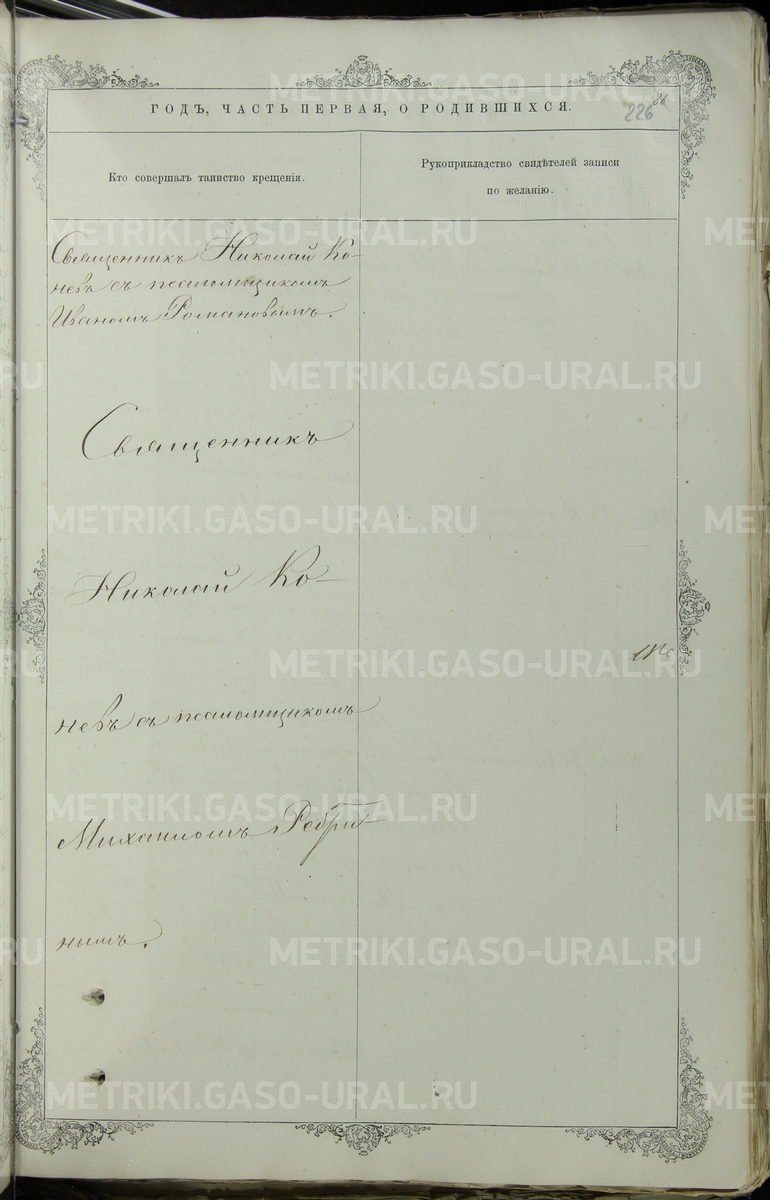 ГОДЪ, ЧАСТЬ ПЕРВАЯ, О РОДИВШИХСЯ.
226
Кто совершалъ таинство крещенія.
Рукоприкладство свидѣтелей записи
по желанію.
Священникъ Николай Ко-
невъ съ псаломщикомъ
Иваномъ Романовымъ.
Священникъ
Николай Ко-
невъ съ псаломщикомъ
Михаиломъ Ребри-
нымъ.
METRIKI.GASO-URAL.RU